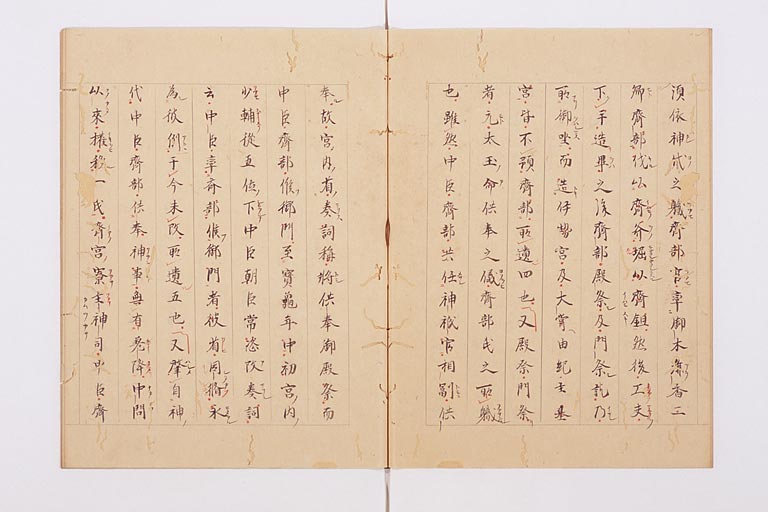 須依神代之軄齊部官率御木麁香二
郷齊部伐以齊斧堀以齊鉏然後工夫
下手造畢之後齊部殿祭及門祭訖乃
所御坐而造伊勢宮及大甞由紀主基
宮皆不預齊部所遺四也又殿祭門祭
者元太玉命供奉之儀齊部氏之所軄
也雖然中臣齊部共任神祇官相副供
奉故宮内省奏詞稱将供奉御殿祭而
中臣齊部候御門至寶龜年中初宮内
少輔從五位下中臣朝臣常恣改奏詞
云中臣率齊部候御門者彼省因循永
為後例于今未改所遺五也又肇自神
代中臣齊部供奉神事無有差降中間
以來權移一氏齊宮寮主神司中臣齊